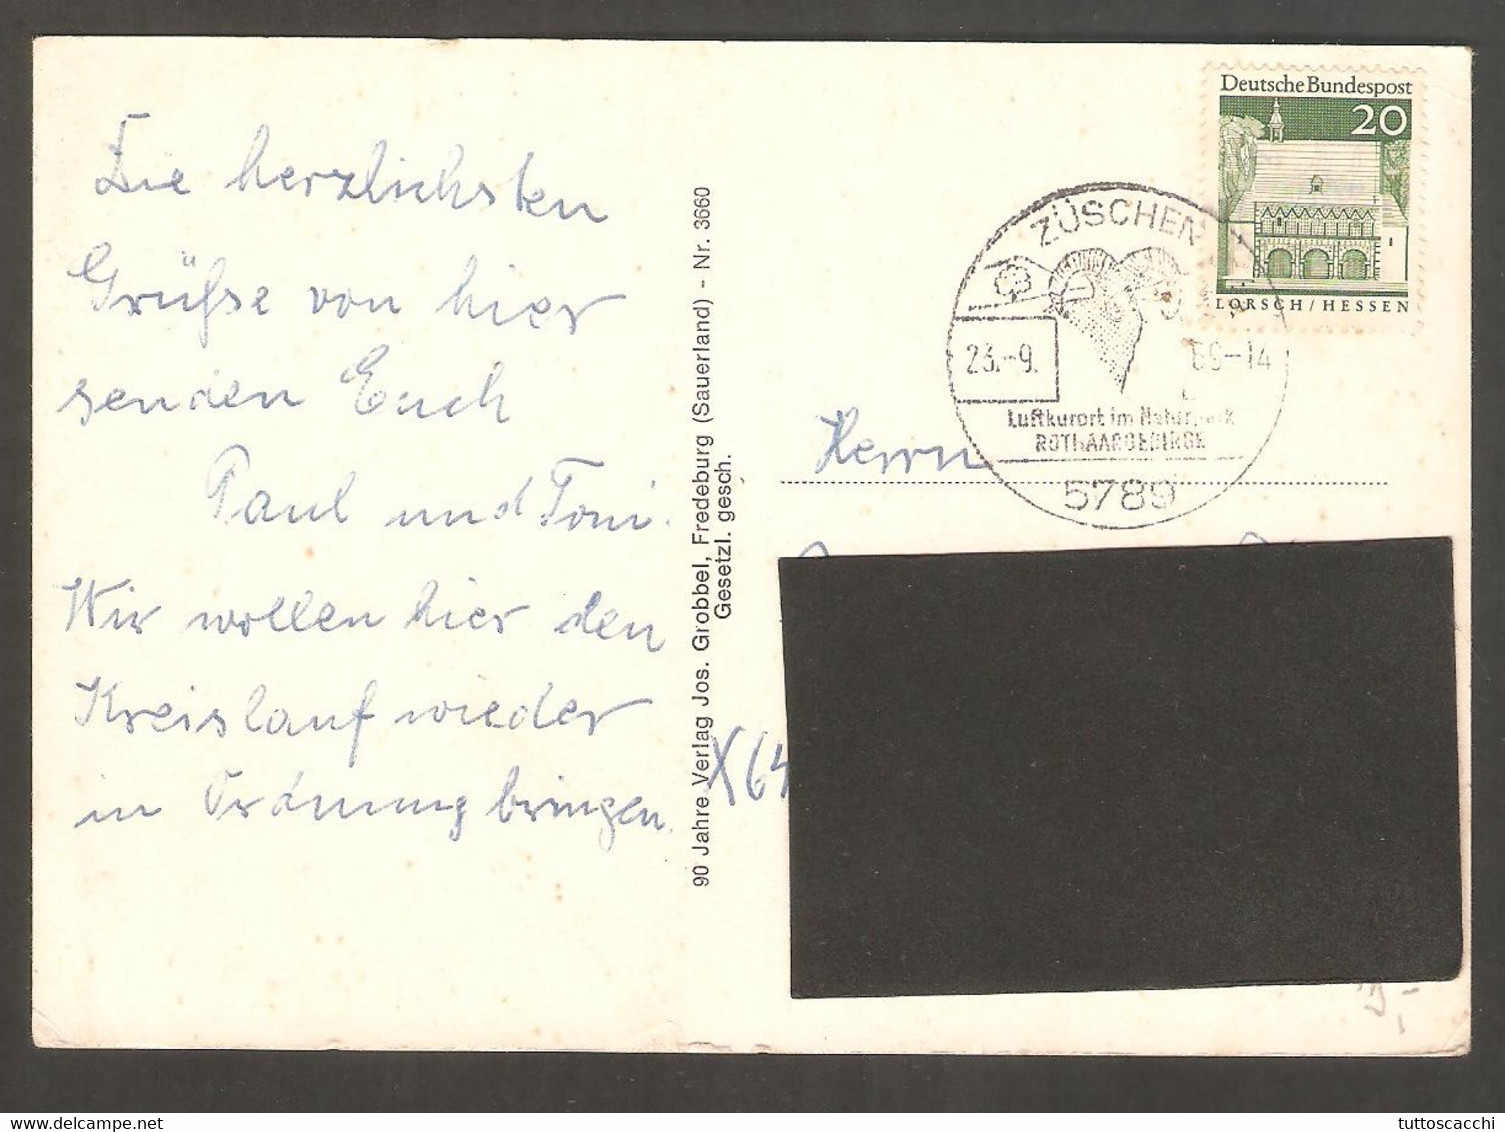 Die herzlichsten
Grüße von hier
senden Euch
Paul und Toni.
Wir wollen hier den
Kreislauf wieder
in Ordnung bringen.
90 Jahre Verlag Jos. Grobbel, Fredeburg (Sauerland) - Nr. 3660
Gesetzl. gesch.
Deutsche Bundespost
20
LORSCH/HESSEN
ZÜSCHEN
23.-9. 69-14
Luftkurort im Naturpark
ROTHAARGEBIRGE
5789
Herrn
X64
tuttoscacchi